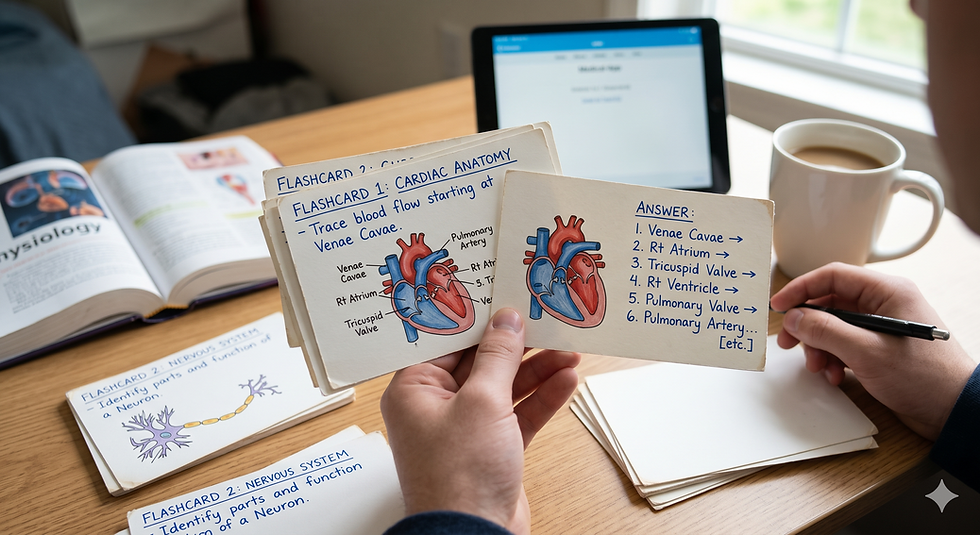 FLASHCARD 2:
FLASHCARD 1: CARDIAC ANATOMY
- Trace blood flow starting at
Venae Cavae.
Pulmonary
Artery
Venae
Cavae
Rt Atrium
Tricuspid
Valve
Rt
5.
ANSWER:
1. Venae Cavae →
2. Rt Atrium →
3. Tricuspid Valve →
4. Rt Ventricle →
5. Pulmonary Valve →
6. Pulmonary Artery...
[etc.]
hysiology
FLASHCARD 2: NERVOUS SYSTEM
- Identify parts and function of
a Neuron.
FLASHCARD 2: NERVOUS SYSTEM
- Identify parts and function
of a Neuron.